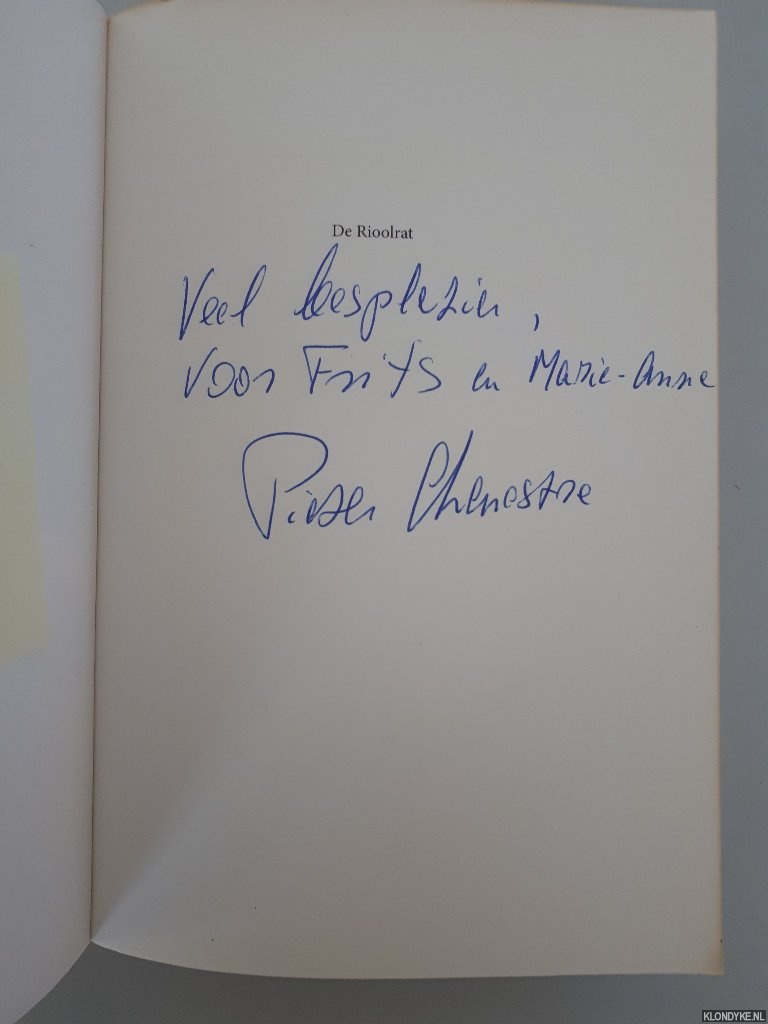 De Rioolrat
Veel leesplezier,
voor Frits en Marie-Anne
Pieter
KLONDYKE.NL